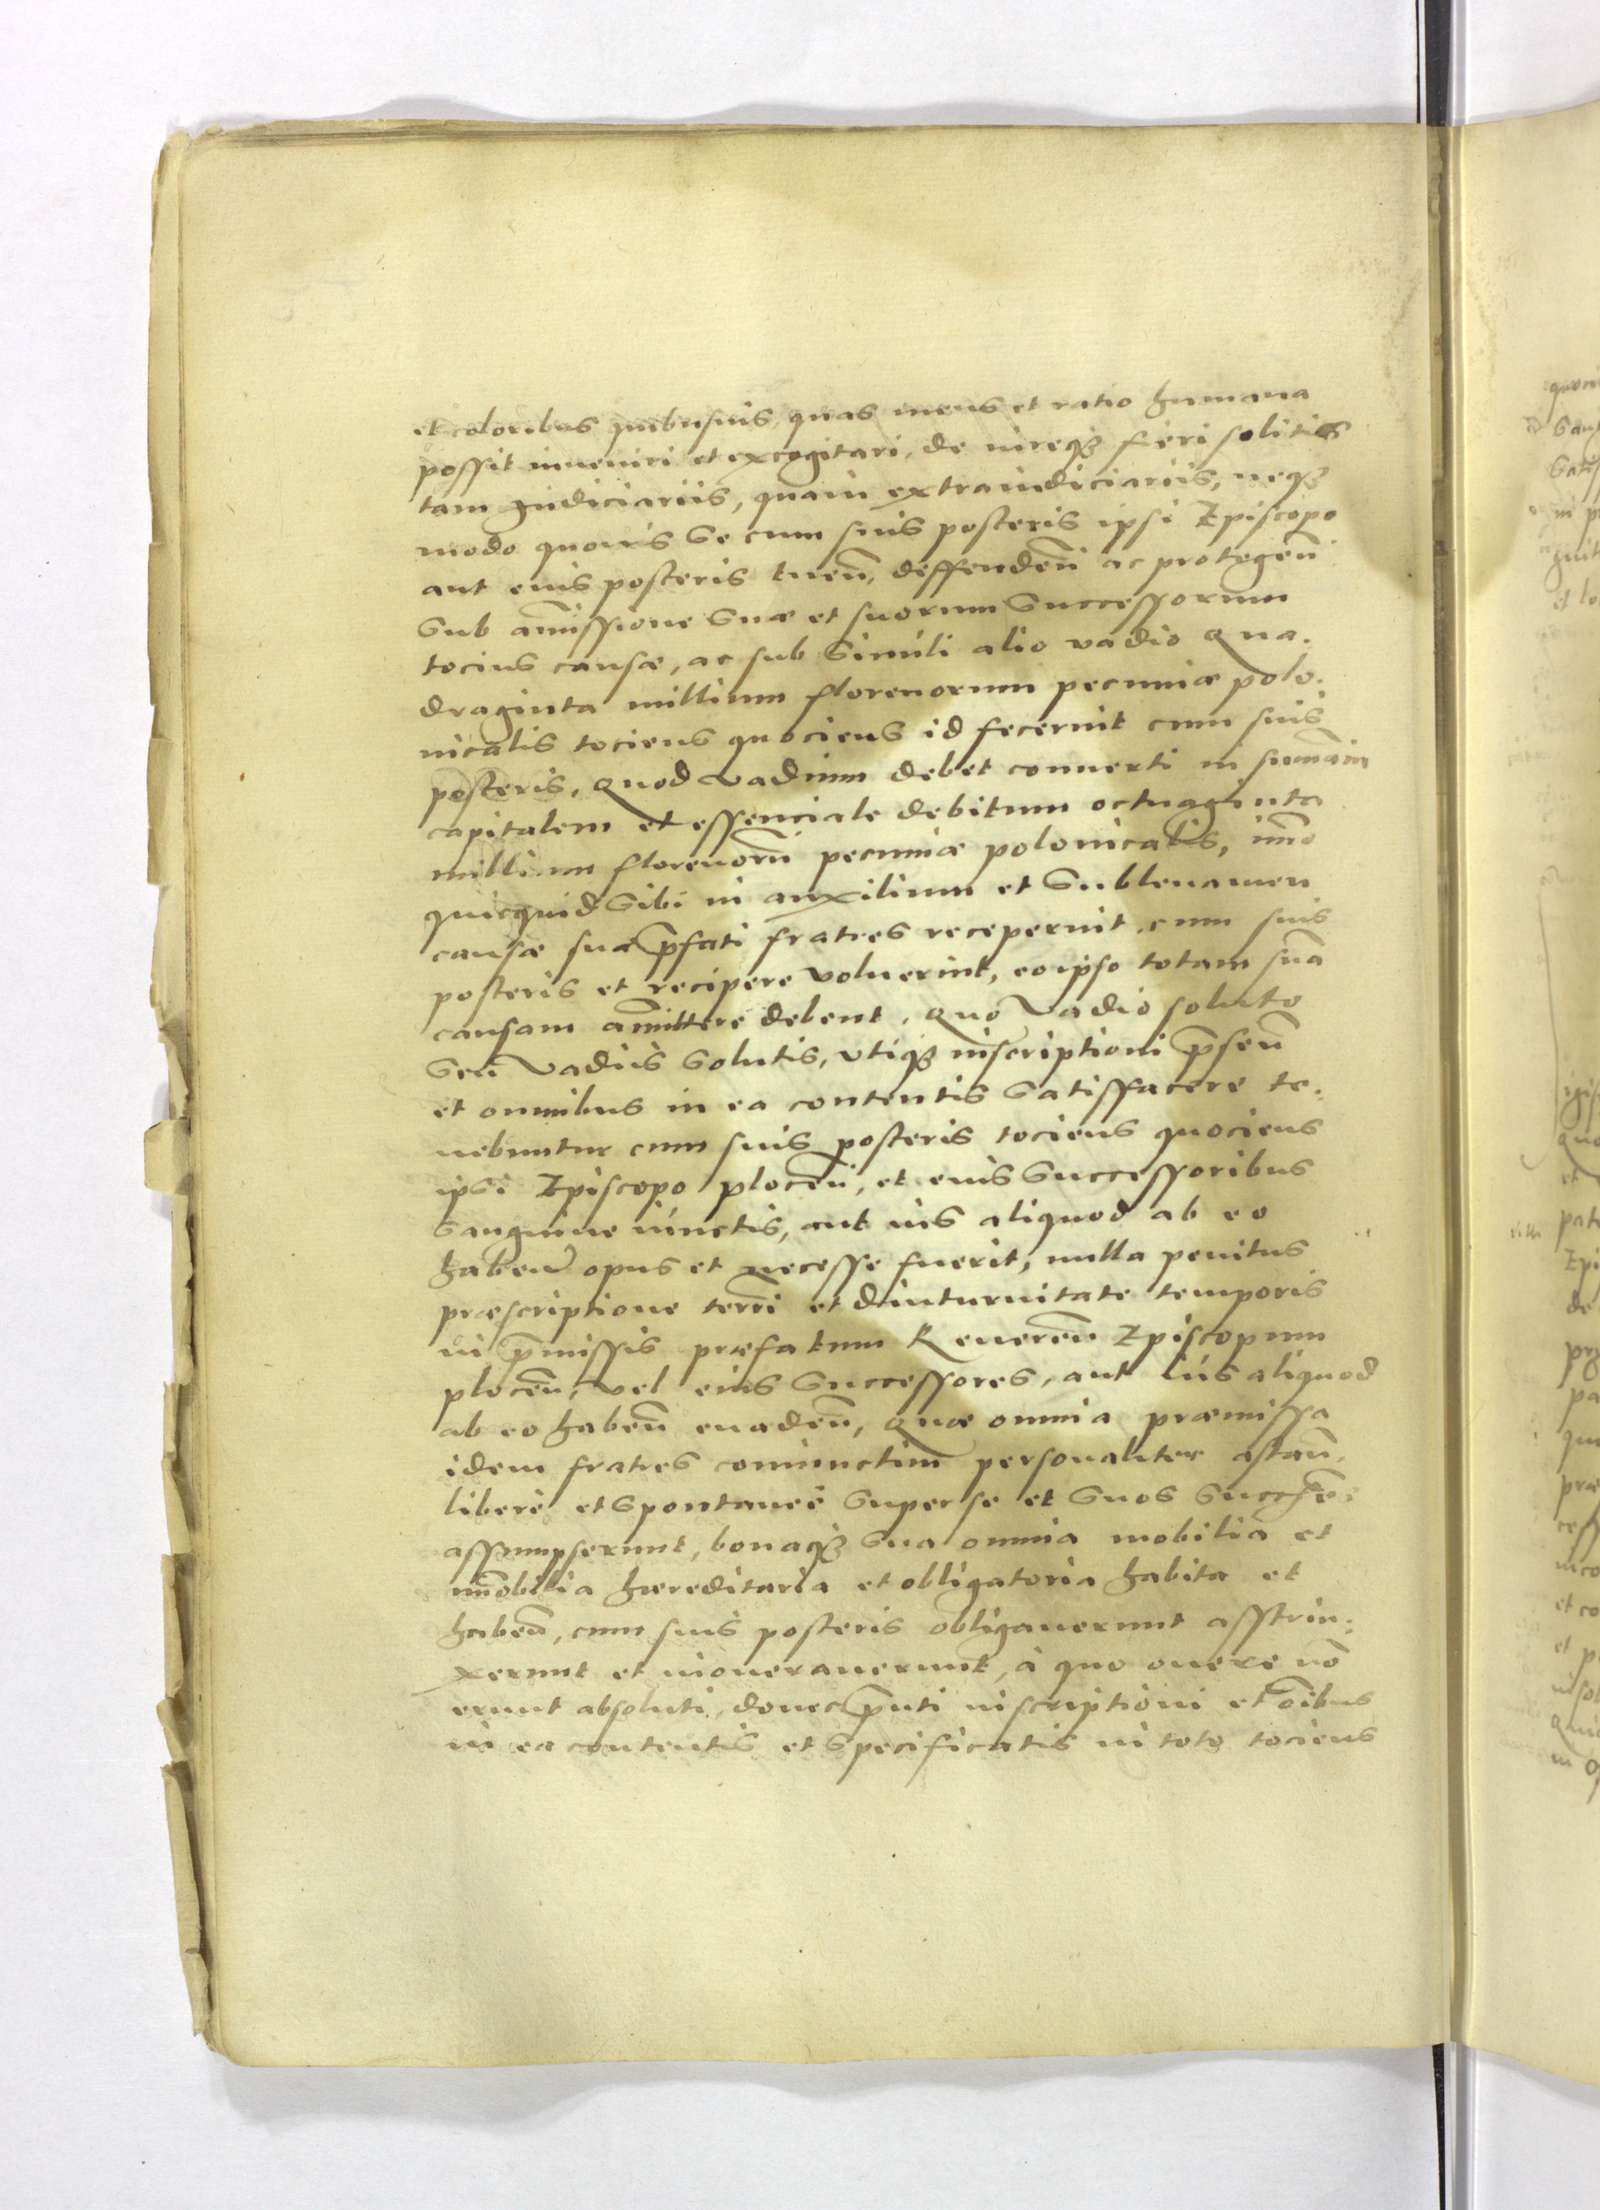 et coloribus quibusuis, quas mens et ratio humana
possit inueniri et excogitari, de iureq3 fieri solitis
tam Judiciariis, quam extraiudiciariis, neq3
modo quouis se cum suis posteris ipsi Episcopo
aut eius posteris tuen̄, deffenden̄ ac protegen̄
sub am̄issione suæ et suorum successorum
tocius causæ, ac sub simili alio vadio Qua.
draginta millium florenorum pecuniæ polo.
nicalis tociens quociens id fecerint cum suis
posteris, Quod vadium debet conuerti in sum̄am
capitalem et essenciale debitum octuaginta
millium florenorū pecuniæ polonicalis, im̄o
quicquid sibi in auxilium et subleuamen
causæ suæ p̄fati fratres receperint cum suis
posteris et recipere voluerint, eo ipso totam suā
causam am̄ittere debent. Quo Vadio soluto
seu vadiis solutis, vtiq3 inscriptioni p̄sen̄
et omnibus in ea contentis satisfacere te.
nebuntur cum suis posteris tociens quociens
ipsi Episcopo plocen̄, et eius successoribus
sanguine iunctis, aut ius aliquod ab eo
haben̄ opus et necesse fuerit, nulla penitus
præscriptione terrī et diuturnitate temporis
in p̄missis præfatum Reueren̄ Episcopum
plocen̄, vel eius successores, aut ius aliquod
ab eo haben̄ euaden̄, Quæ omnia præmissa
idem fratres coniunctim personaliter astan̄.
liberè et spontaneè super se et suos
assumpserunt, bonaq3 sua omnia mobilia et
im̄obilia hæreditaria et obligatoria habita et
haben̄, cum suis posteris obligauerunt asstrin.
xerunt et inonerauerunt, à quo onere nō
erunt absoluti, donec p̄nti inscriptioni et oībus
in ea contentis et specificatis in toto tociens